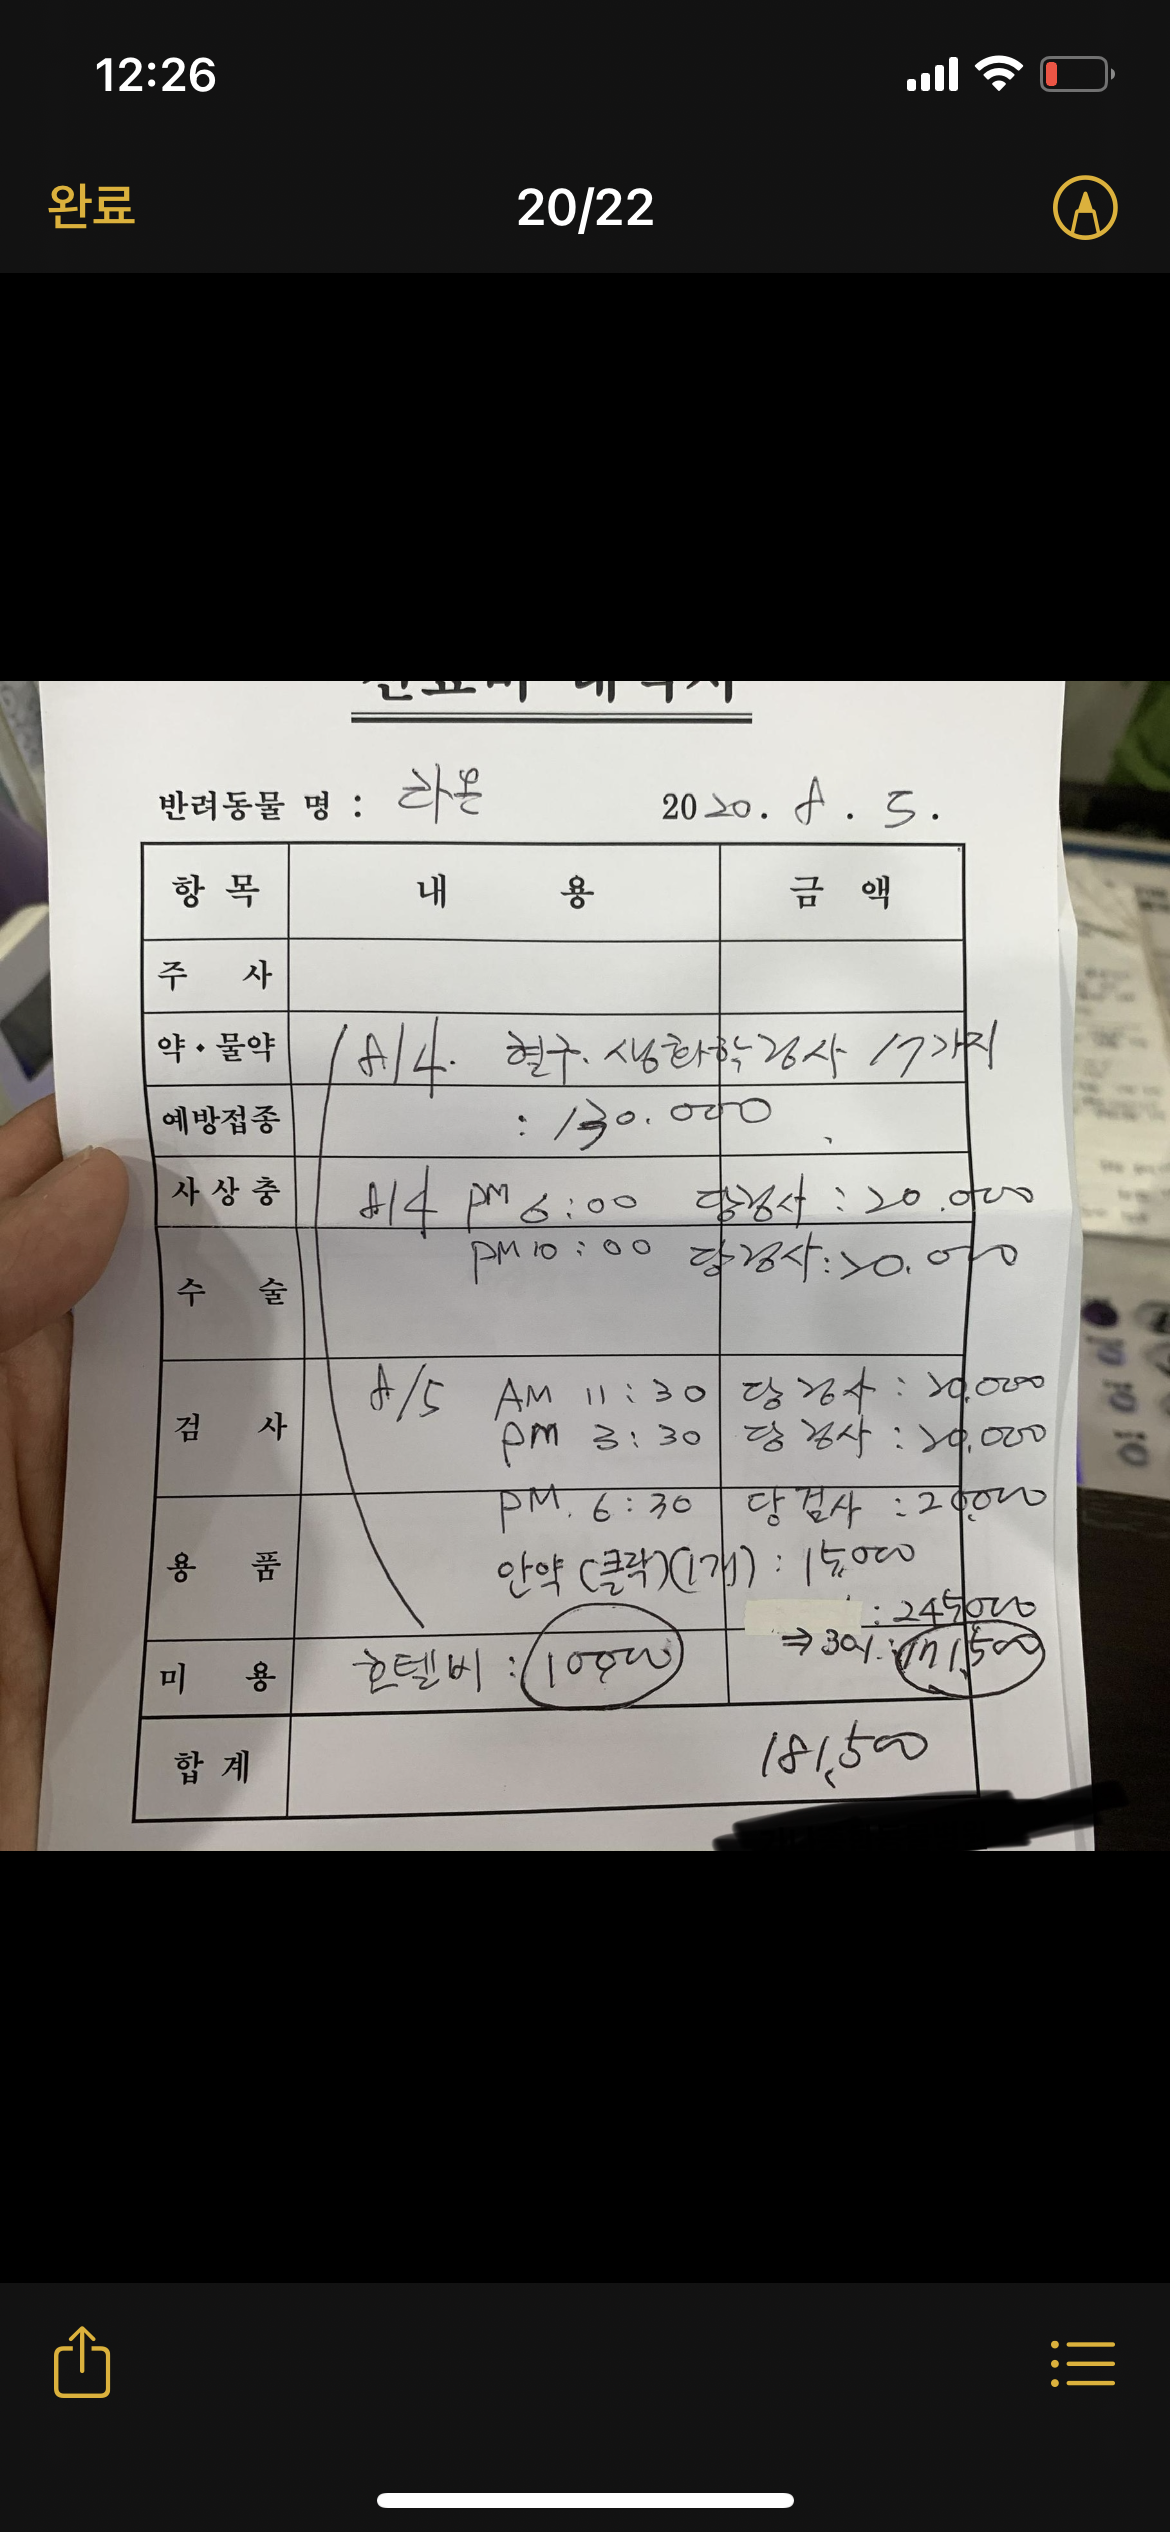 12:26
완료
20/22
반려동물 명 : 라온
2020. 8. 5.
항 목 내 용 금 액
주 사
약·물약 8/4. 혈구. 생화학검사 17가지
예방접종 : 130.000
사상충 8/4 PM 6:00 당검사 : 20.000
PM 10:00 당검사 : 20.000
수 술
8/5 AM 11:30 당검사 : 20.000
검 사 PM 3:30 당검사 : 20.000
PM. 6:30 당검사 : 20.000
용 품 안약 (클락)(1개) : 15000
: 245000
⇒ 30% : 171,500
미 용 호텔비 : 10000
합 계 181,500